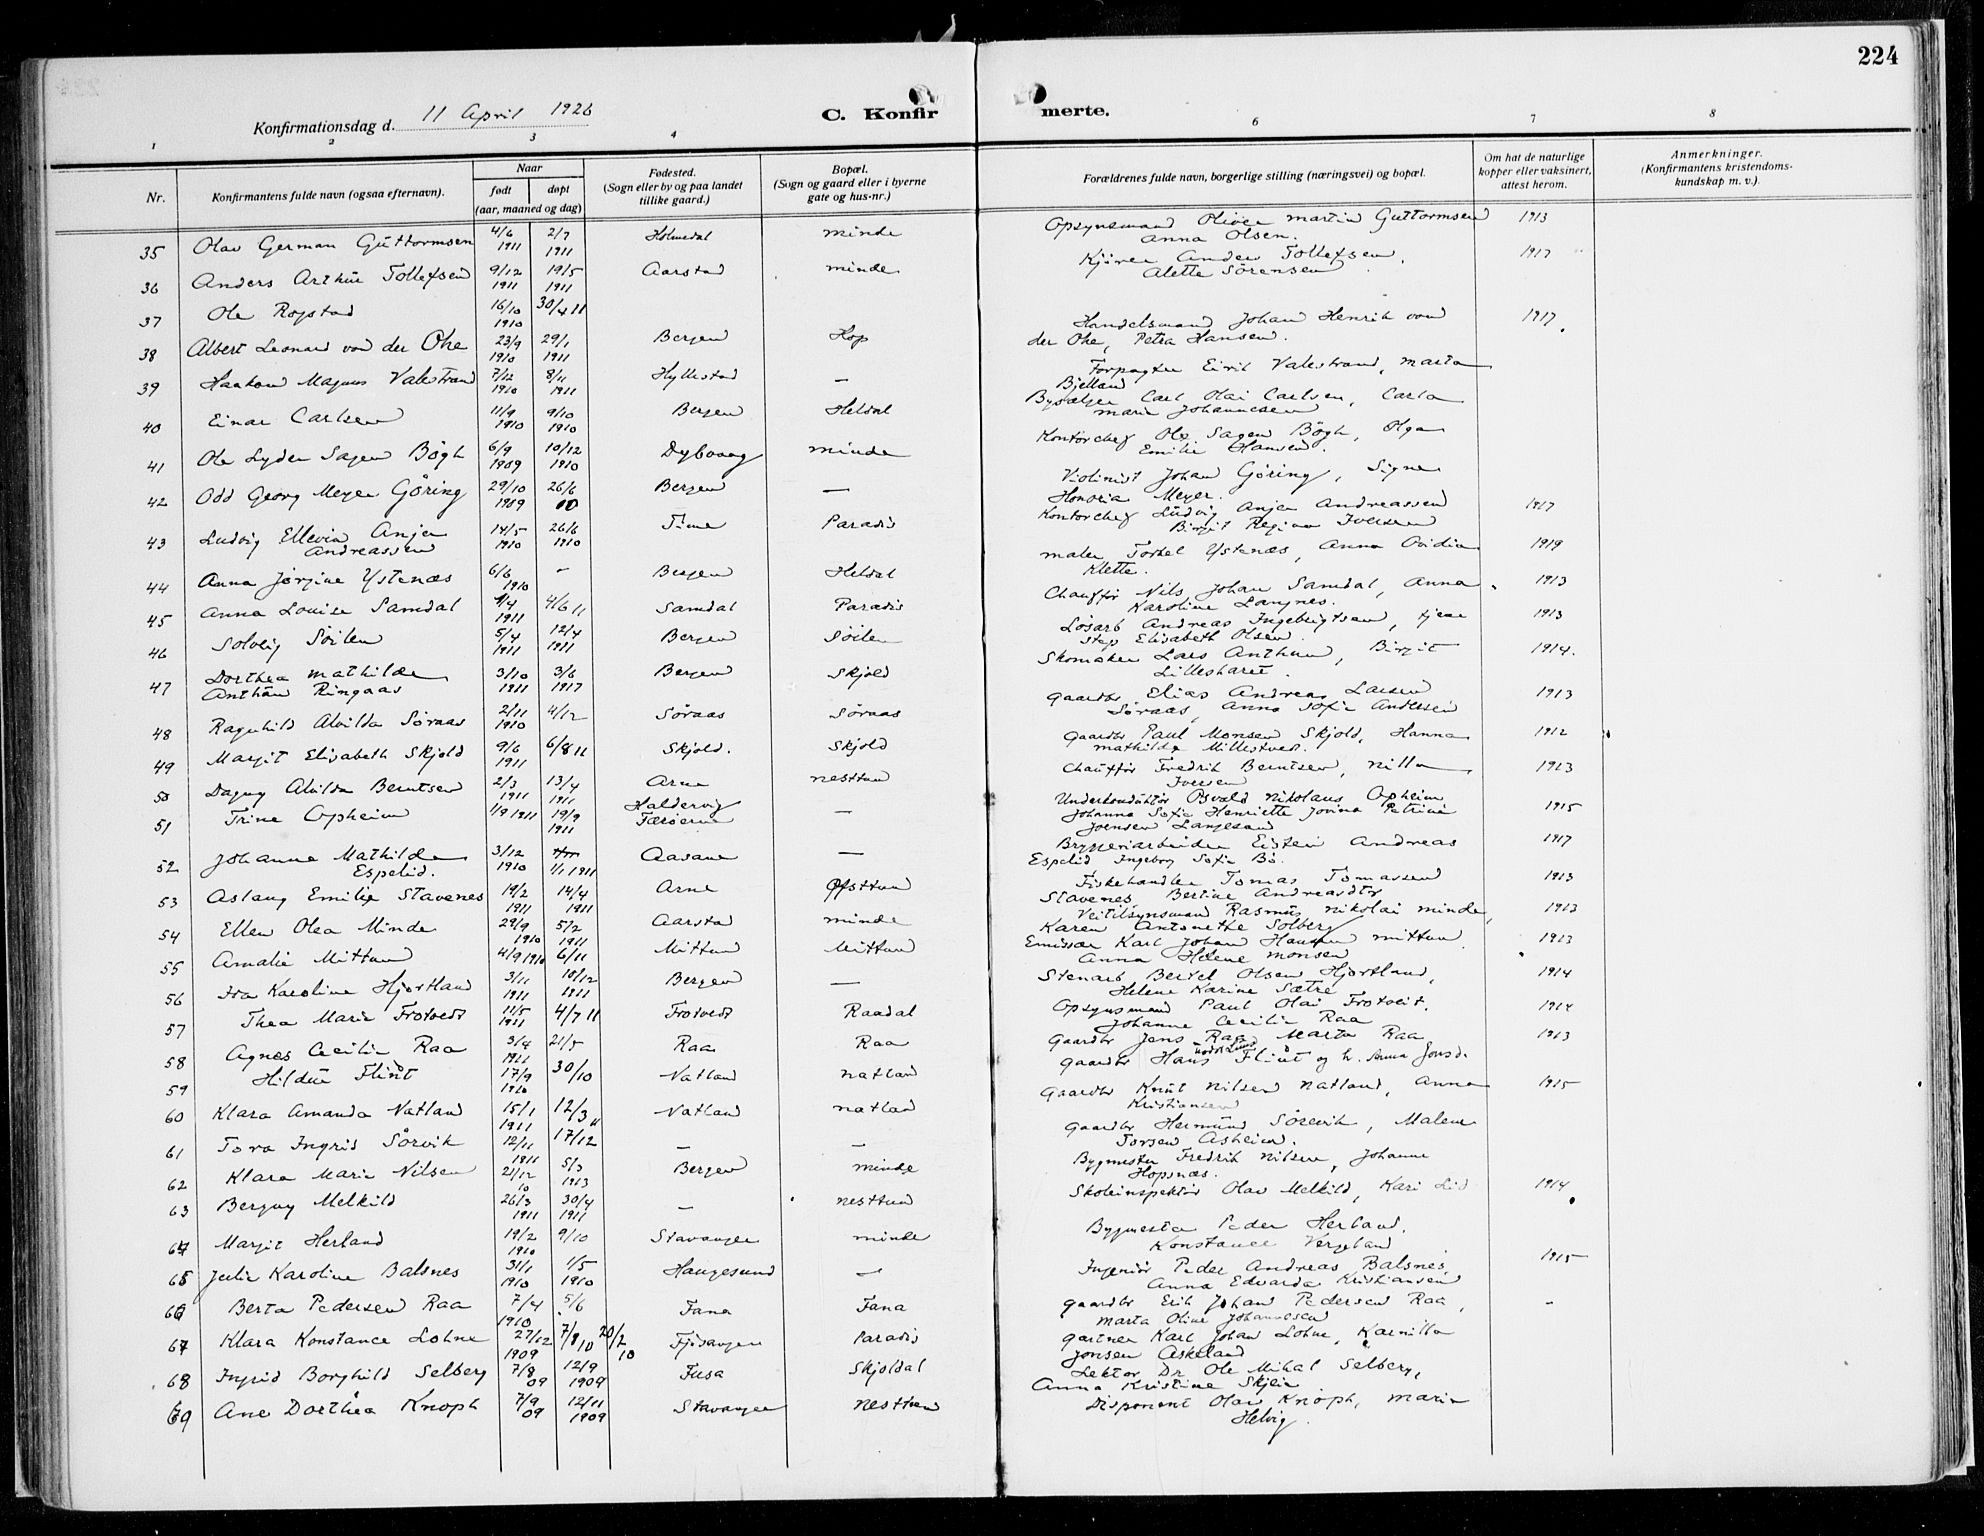 224
Konfirmationsdag d. 11 April 1926
C. Konfirmerte.
1 2 3 4 6 7 8
Nr. | Konfirmantens fulde navn (ogsaa efternavn). | Naar født døpt (aar, maaned og dag) | Fødested. (Sogn eller by og paa landet tillike gaard.) | Bopæl. (Sogn og gaard eller i byerne gate og hus-nr.) | Forældrenes fulde navn, borgerlige stilling (næringsvei) og bopæl. | Om hat de naturlige kopper eller vaksinert, attest herom. | Anmerkninger. (Konfirmantens kristendomskundskap m. v.).
35 Olav German Guttormsen 4/6 1911 2/7 1911 Holmedal Minde Opsynsmand Oliver Martin Guttormsen Anna Olsen. 1913
36 Anders Arthur Tollefsen 9/12 1911 19/5 1911 Aarstad Minde Kjører Anders Tollefsen, Alette Sörensen 1917
37 Ole Rogstad 16/10 1910 30/4 11
38 Albert Leonard von der Ohe 23/9 1910 29/1 1911 Bergen Hop Handelsmand Johan Henrik von der Ohe, Petra Hansen. 1917
39 Haakon Magnus Valestrand 7/12 1910 8/11 1911 Hyllestad — Forpagter Eirik Valestrand, Marta Bjelland
40 Einar Carlsen 11/9 1910 9/10 1910 Bergen Heldal Carl Olai Carlsen, Carla Marie Johannesen
41 Ole Lyder Sagen Bögh 6/9 1909 10/12 1910 Dybvaag Minde Kontorchef Ole Sagen Bögh, Olga Emilie Hansen.
42 Odd Georg Meyer Göring 29/10 1909 26/6 Bergen — Violinist Johan Göring, Signe Honoria Meyer.
43 Ludvig Ellevin Anjer Andreassen 14/5 1910 26/6 1910 Time Paradis Kontorchef Ludvig Anjer Andreassen Birgit Regina Iversen 1917
44 Anna Jörgine Ystenæs 6/6 1910 — Bergen Heldal Maler Torkel Ystenæs, Anna Ovidia Klette. 1919
45 Anna Louise Samdal 1/4 1911 4/6 11 Samdal Paradis Chauffør Nils Johan Samdal, Anna Karoline Langnes. 1913
46 Solveig Söilen 5/4 1911 12/4 1911 Bergen Söilen Løsarb Andreas Ingebrigtsen, Elisabeth Olsen. 1913
47 Dorthea Mathilde Anthun Ringaas 3/10 1911 3/6 1917 Bergen Skjold Skomaker Lars Anthun, Birgit Lilleskaret. 1914.
48 Ragnhild Alvilda Söraas 2/11 1910 4/12 Söraas Söraas Gaardbr Elias Andreas Larsen Söraas, Anna Sofie Andersen 1913
49 Margit Elisabeth Skjold 9/6 1911 6/8 11 Skjold. Skjold Gaardbr Paul Monsen Skjold, Hanna Mathilde Milleshved. 1912
50 Dagny Alvilda Berntsen 2/3 1911 13/4 1911 Arna Nesttun Chauffør Fredrik Berntsen, Nilla Iversen 1913
51 Trine Opheim 1/9 1911 19/9 1911 Haldervig Færøerne — Underkonduktør Osvald Nikolaus Opheim Johanna Sofie Henriette Jovina Petrine Joensen Langesand 1915
52 Johanne Mathilde Espelid. 3/12 1910 1/1 1911 Aasane — Bryggeriarbeider Eistein Andreas Espelid Ingeborg Sofie Bö. 1917
53 Aslaug Emilie Stavenes 19/2 1911 14/4 1911 Arne Øfsttun Fiskehandler Tomas Tomassen Stavenes, Bertine Andreasdtr 1913
54 Ellen Olea Minde 29/9 1910 5/2 1911 Aarstad Minde Veitilsynsmand Rasmus Nikolai Minde, Karen Antonette Solberg 1913
55 Amalie Mittun 4/9 1910 6/11 Mittun Mittun Emissær Karl Johan Hansen Mittun. Anna Helene Monsen 1913
56 Karoline Hjortland 3/11 1911 10/12 1911 Bergen — Stenarb Bertel Olsen Hjortland, Helene Karine Sætre 1914
57 Thea Marie Frotvedt 11/5 1911 4/7 11 Frotvedt Raadal Opsynsmand Paul Olai Frotveit. Johanne Cecilie Raa 1914
58 Agnes Cecilie Raa 3/4 1911 21/5 Raa Raa Gaardbr Jens Raa, Marta Raa 1913
59 Hildur Flint 17/9 1910 30/10 Natland Natland Gaardbr Hans Flint og h. Anna Jonsd.
60 Klara Amanda Natland 15/1 1911 12/3 11 Natland Natland Gaardbr Knut Nilsen Natland, Anna Kristiansen 1915
61 Tora Ingrid Sörvik 12/11 1911 17/12 — — Gaardbr Hermund Sörevik, Malene Torsen Asheim.
62 Klara Marie Nilsen 21/12 10 5/3 1913 Bergen Minde Bygmester Fredrik Nilsen, Johanne Hopsnæs.
63 Bergny Melkild 26/3 1911 30/4 1911 — Nesttun Skoleinspektør Olav Melkild, Kari Lid 1914
64 Margit Herland 19/2 1910 9/10 Stavanger Minde Bygmester Peder Herland. Konstance Vergeland
65 Julie Karoline Balsnes 31/1 1910 1/5 1910 Haugesund — Ingeniør Peder Andreas Balsnes, Anna Edvarda Kristiansen 1915
66 Berta Pedersen Raa 7/4 1910 5/6 Fana Fana Gaardbr Erik Johan Pedersen Raa, Marta Oline Johannesen —
67 Klara Konstance Lohne 27/12 1909 7/8 10 20/2 10 Fjösanger Paradis Gartner Karl Johan Lohne, Kamilla Jonsen Askeland
68 Ingrid Borghild Selberg 7/8 09 12/9 1909 Fusa Skjoldal Lektor Dr Ole Mikal Selberg, Anna Kristine Skjelin
69 Ane Dorthea Knoph 7/9 09 12/11 1909 Stavanger Nesttun Disponent Olav Knoph, Marie Helvig.